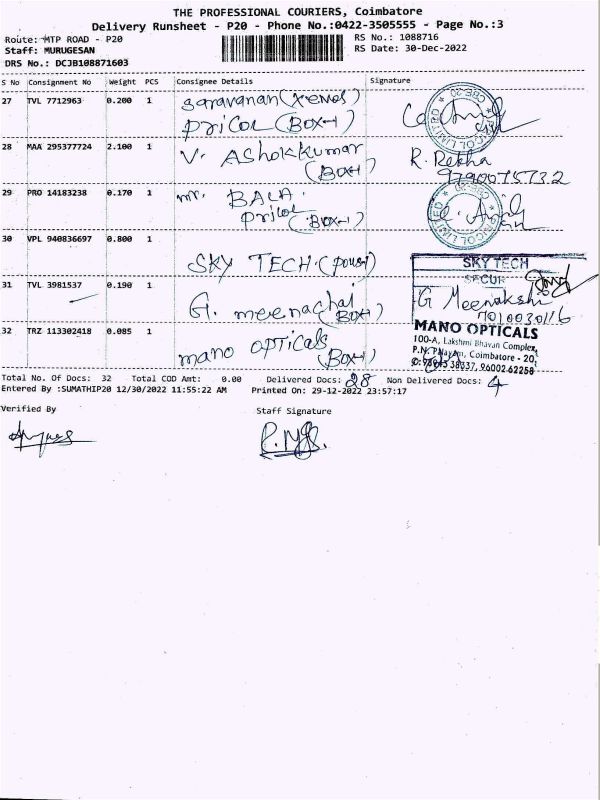 THE PROFESSIONAL COURIERS, Coimbatore
Delivery Runsheet - P20 - Phone No.:0422-3505555 - Page No.:3
Route: MTP ROAD - P20
RS No.: 1088716
Staff: MURUGESAN
RS Date: 30-Dec-2022
DRS No.: DCJB108871603
S No Consignment No Weight PCS Consignee Details Signature
27 TVL 7712963 0.200 1 Saravanan (
PRICOL (BOX-1)
PRICOL LIMITED CBE-20
28 MAA 295377724 2.100 1 V. AShokkumar
(BOX-1) R. Rekha
9790075732
29 PRO 14183238 0.170 1 mr. BALA.
pricol (BOX-1)
PRICOL LIMITED CBE-20
30 VPL 940836697 0.800 1
SKY TECH. SKY TECH
31 TVL 3981537 0.190 1 G. meenachai
(BOX-1) G Meenakshi
7010030116
32 TRZ 113302418 0.085 1
mano opticals
(BOX-1)
MANO OPTICALS
100-A, Lakshmi Bhavan Complex,
P.N. Palayam, Coimbatore - 20,
38337, 96002 62258
Total No. Of Docs: 32 Total COD Amt: 0.00 Delivered Docs: 28 Non Delivered Docs: 4
Entered By :SUMATHIP20 12/30/2022 11:55:22 AM Printed On: 29-12-2022 23:57:17
Verified By
Staff Signature